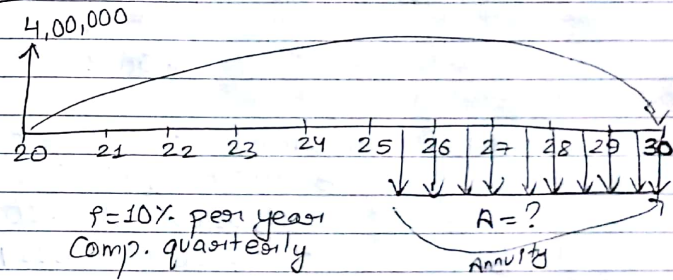 4,00,000
20 21 22 23 24 25 26 27 28 29 30
r=10% per year A=?
Comp. quarterly Annuity